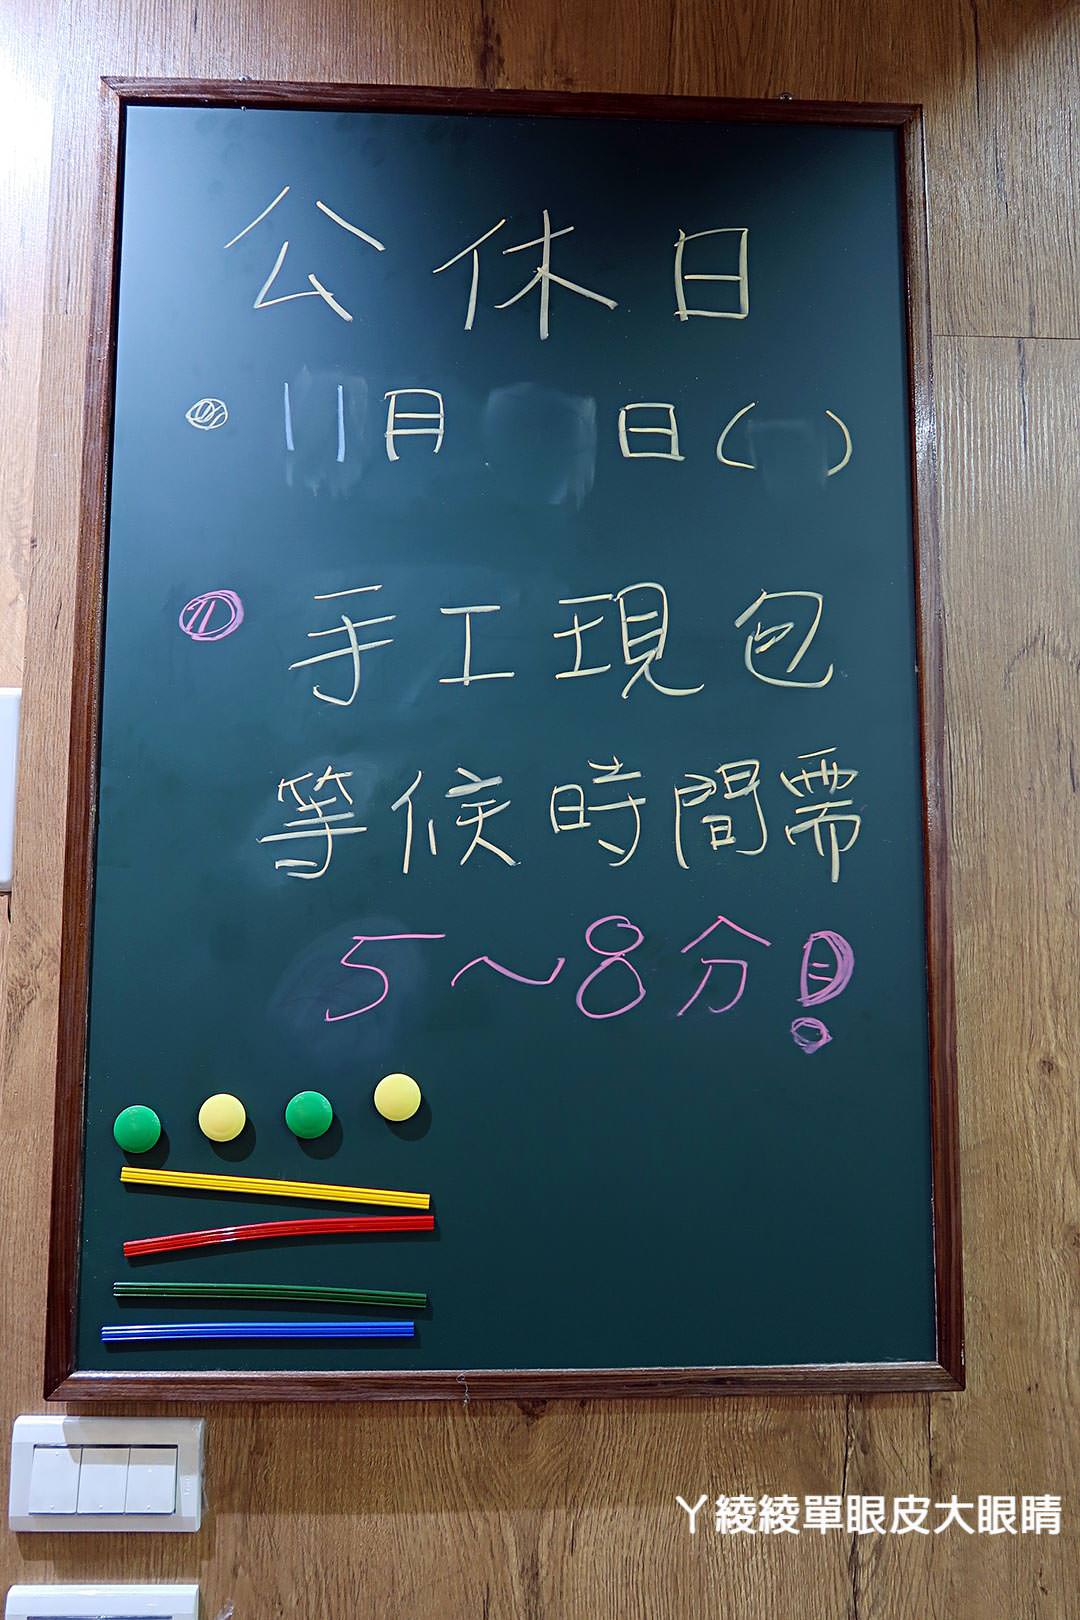 公休日
11月 日( )
手工現包
等候時間需
5~8分!
ㄚ綾綾單眼皮大眼睛